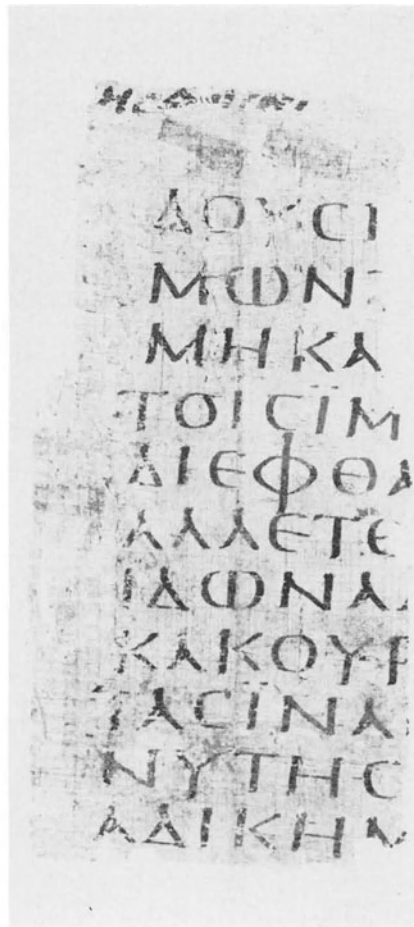 ΔΟΥϹΙ
ΜΩΝ
ΜΗΚΑ
ΤΟΙϹΪΜ
ΔΙΕΦΘΑ
ΑΛΛΕΤΕ
ΙΔΩΝΑ
ΚΑΚΟΥΡ
ΤΑϹΪΝΑ
ΝΥΤΗϹ
ΑΔΙΚΗΜ